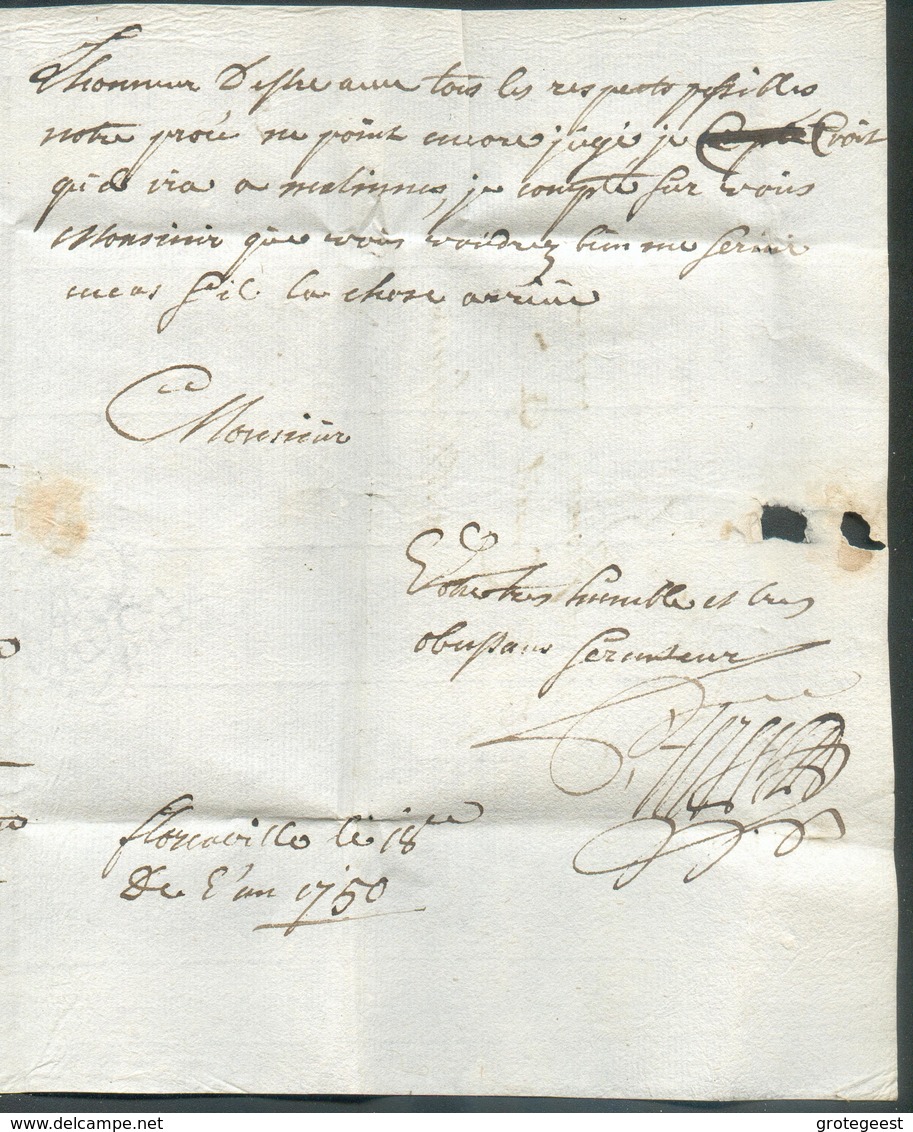 Lhonneur Destre avec tous les respects possibles
notre procé ne point encore jugé je Croit
qil ira a malinnes, je compte sur vous
Monsieur que vous voudrez bien me servir
en cas sil la chose arrive
Monsieur
Votre tres humble et tres
obeissans serviteur
florenville le 18
De l'an 1750
grotegeest